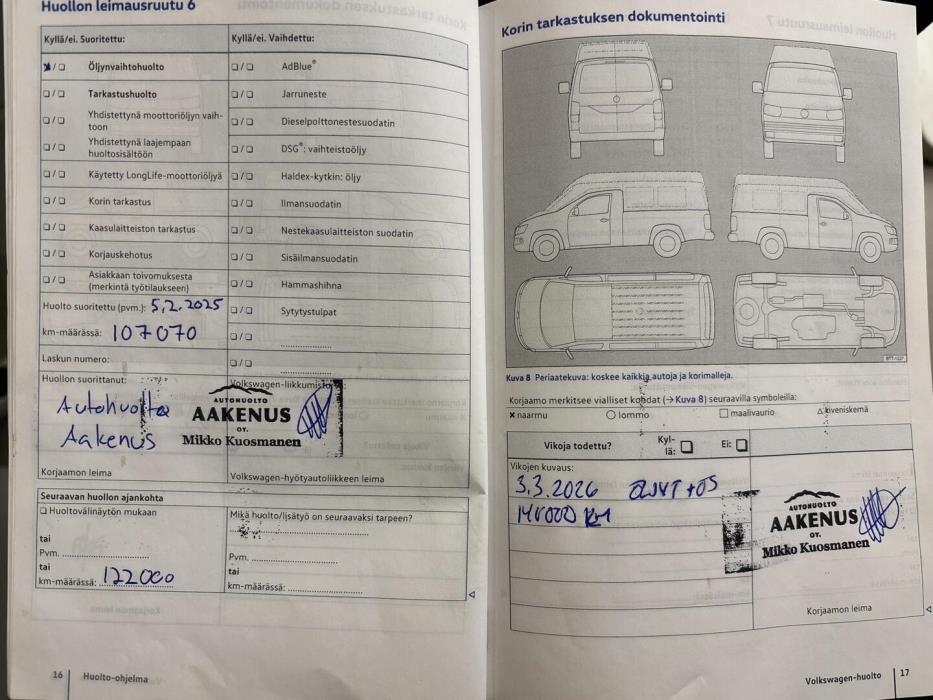 Huollon leimausruutu 6
Kyllä/ei. Suoritettu:
Kyllä/ei. Vaihdettu:
Öljynvaihtohuolto
AdBlue®
Tarkastushuolto
Jarruneste
Yhdistettynä moottoriöljyn vaih-
toon
Dieselpolttonestesuodatin
Yhdistettynä laajempaan
huoltosisältöön
DSG®: vaihteistoöljy
Käytetty LongLife-moottoriöljyä
Haldex-kytkin: öljy
Korin tarkastus
Ilmansuodatin
Kaasulaitteiston tarkastus
Nestekaasulaitteiston suodatin
Korjauskehotus
Sisäilmansuodatin
Asiakkaan toivomuksesta
(merkintä työtilaukseen)
Hammashihna
Huolto suoritettu (pvm.): 5,2,2025
Sytytystulpat
km-määrässä: 107070
Laskun numero:
Huollon suorittanut:
Volkswagen-liikkumista
Autohuolto
Aakenus
AUTOHUOLTO
AAKENUS
OY.
Mikko Kuosmanen
Korjaamon leima
Volkswagen-hyötyautoliikkeen leima
Seuraavan huollon ajankohta
Huoltovälinäytön mukaan
tai
Pvm.
tai
km-määrässä: 122000
Mikä huolto/lisätyö on seuraavaksi tarpeen?
Pvm.
tai
km-määrässä:
16 Huolto-ohjelma
Korin tarkastuksen dokumentointi
Kuva 8 Periaatekuva: koskee kaikkia autoja ja korimalleja.
Korjaamo merkitsee vialliset kohdat (→ Kuva 8) seuraavilla symboleilla:
naarmu
lommo
maalivaurio
kiveniskemä
Vikoja todettu?
Kyl-
lä:
Ei:
Vikojen kuvaus:
3.3.2026
KM
AUTOHUOLTO
AAKENUS
OY.
Mikko Kuosmanen
Korjaamon leima
Volkswagen-huolto 17